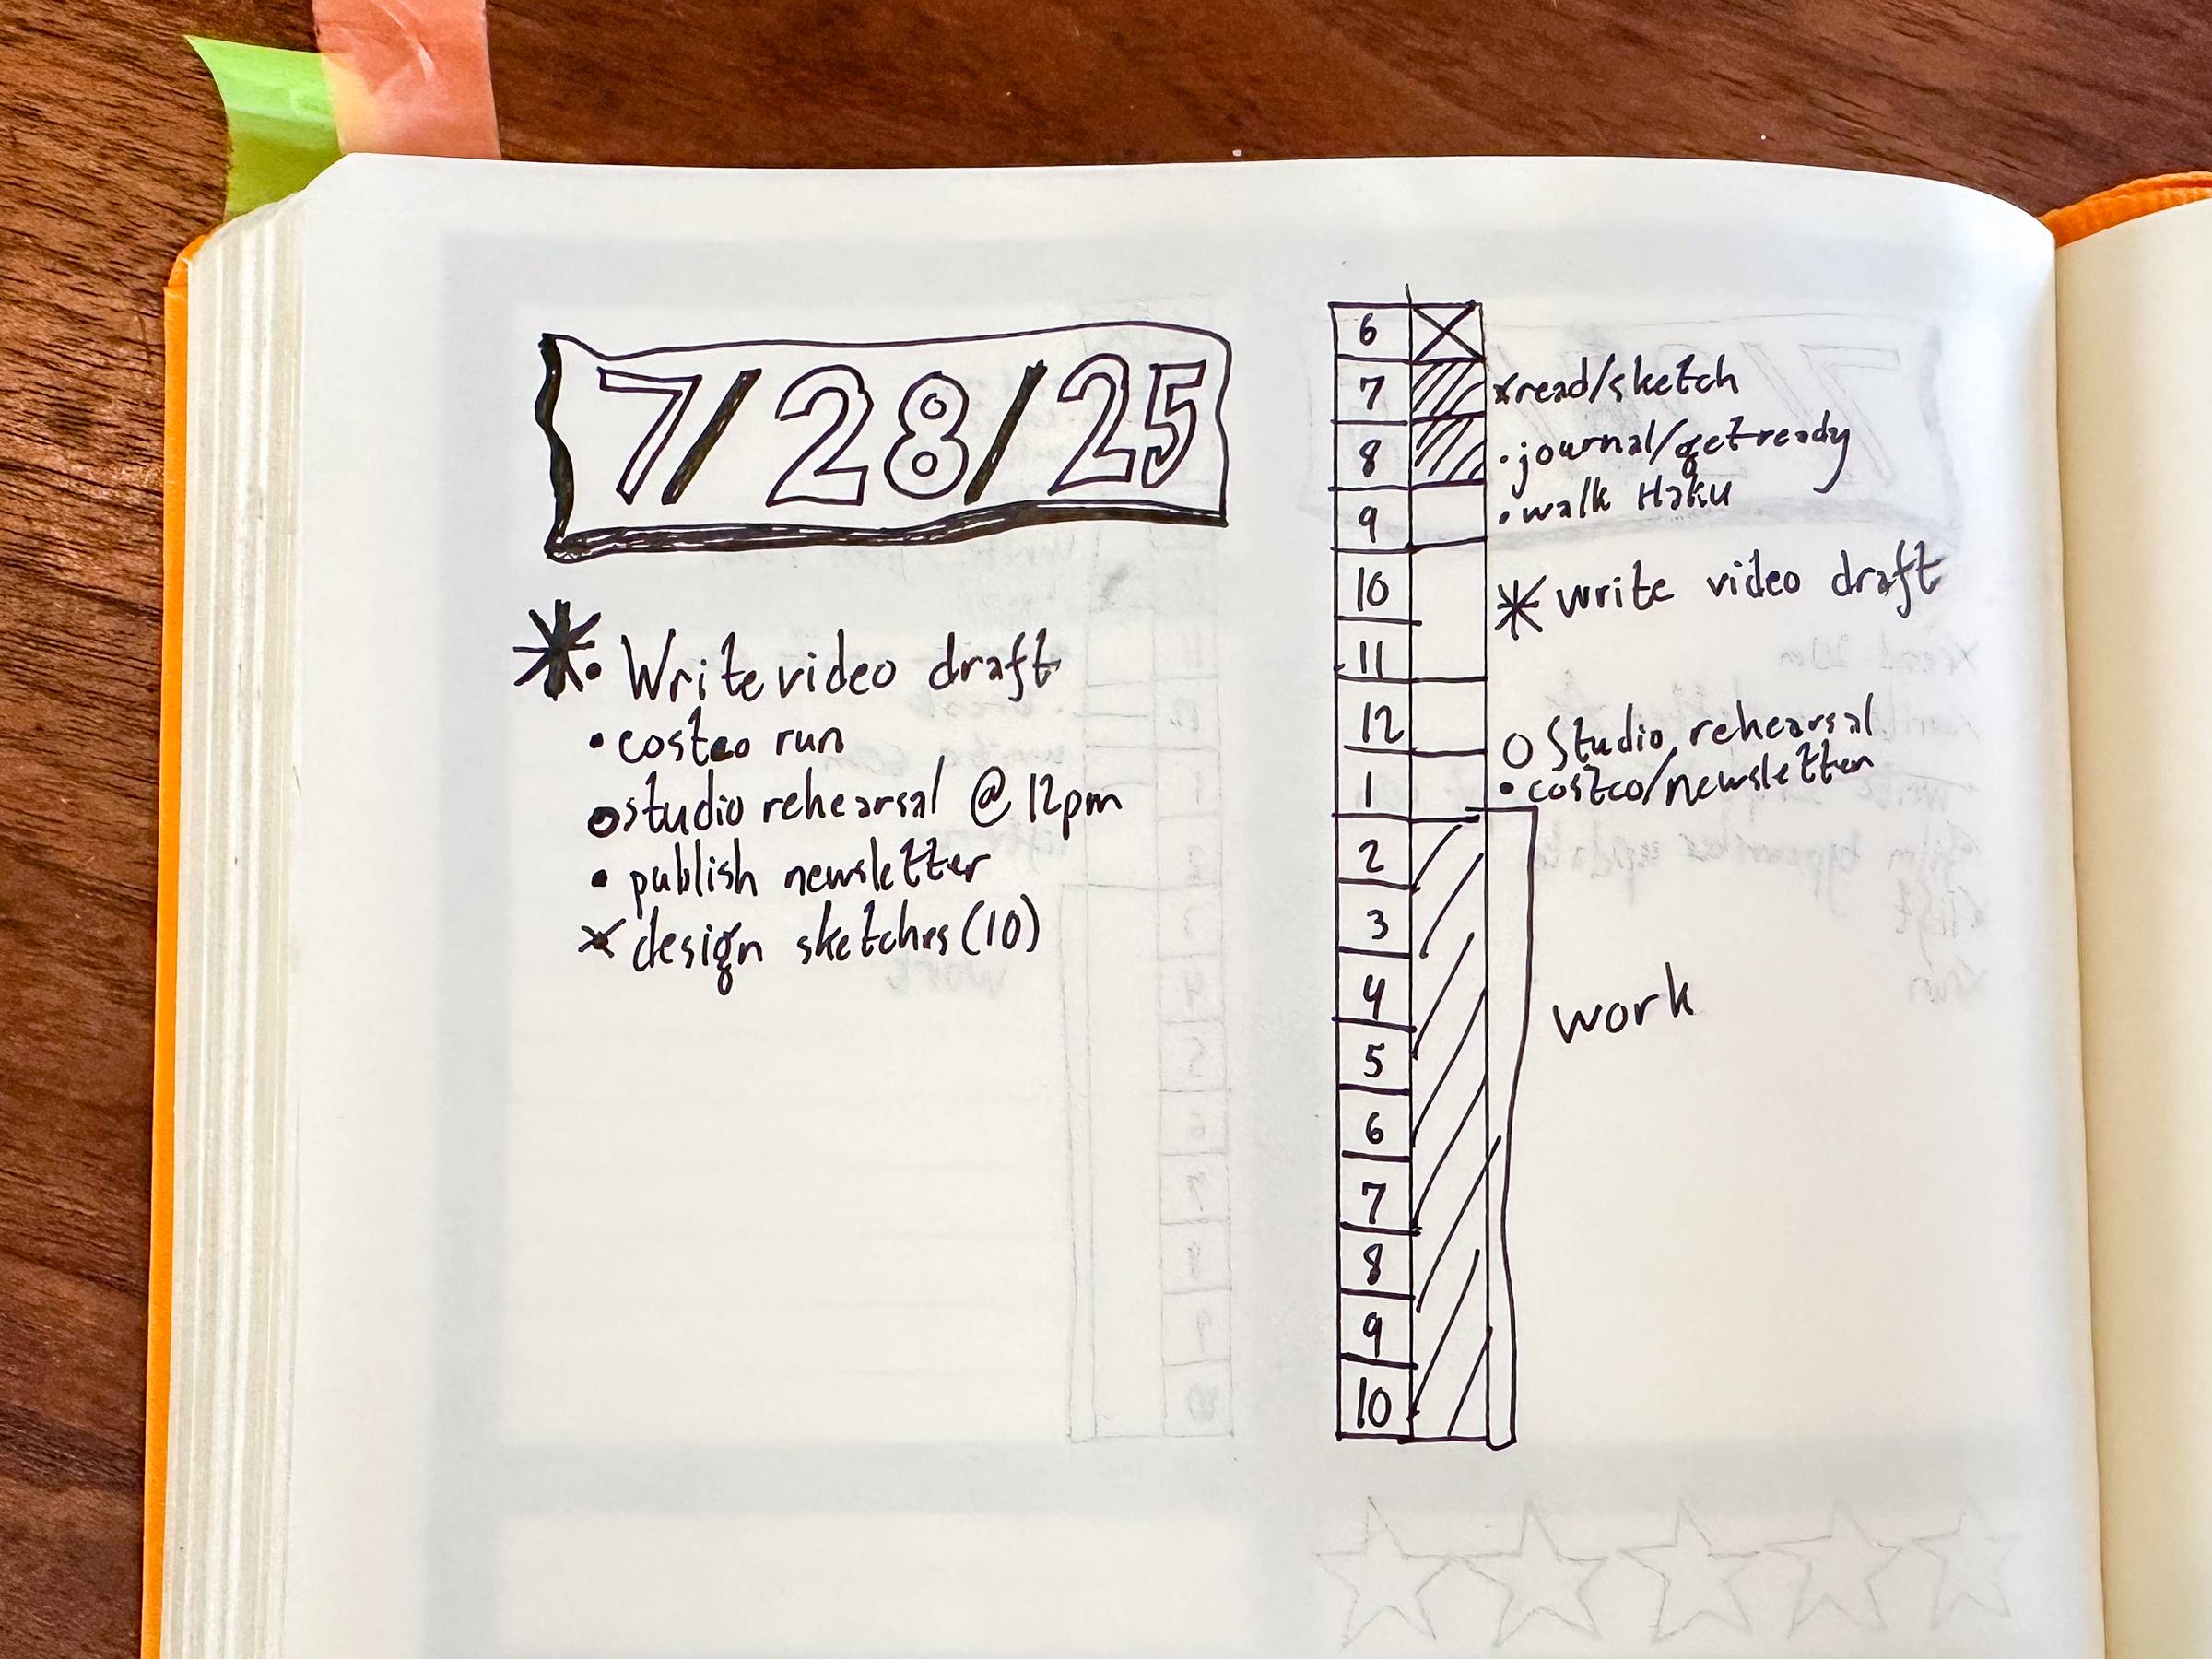 7/28/25
Write video draft
• costco run
○ studio rehearsal @ 12pm
• publish newsletter
x design sketches (10)
6
7 x read/sketch
8 • journal/get ready
9 • walk Haku
10 * write video draft
11
12 ○ Studio rehearsal
1 • costco/newsletter
2
3
4 work
5
6
7
8
9
10